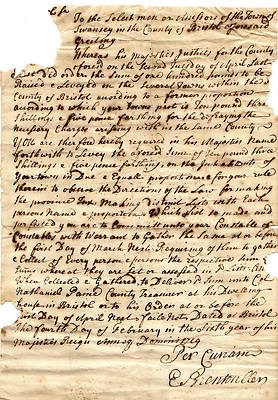 To the Select men or Assessors of the Town of
Swansey in the County of Bristol aforesaid
Greeting
Whereas his Majesties Justices for the County
aforesd on the Second Tuesday of April Last
past did order the Sum of one hundred pounds to be
Raised & Leveyed in the Severel Towns within the sd
County of Bristol according to a former proportion
according to which your Towns part is Ten pound three
Shillings & five pence farthing for the defraying the
necessary Charges arising within the same County
You are therefore hereby required in his Majesties Name
forthwith to Levey the aforesd Sume of Ten pound three
Shillings & five pence farthing on the Inhabitants
your town in Due & Equall proportion &
therein to observe the Directions of the Law for making
the province Tax Making Distinct Lists with Each
persons Name & proportion Which List so made and
perfected you are to Committ unto your Constable or
Constables with Warrant to Gather the same at or before
the first Day of March Next Requiring of him to gather
& Collect of Every person & persons the respective
Sums whereat they are set or assessed in sd List
When Collected & Gathered to Deliver sd Sum unto Col
Nathaniel Paine County Treasurer at his Dweling
house in Bristol or to his Order at or before the
first Day of April Next Faile Not Dated at Bristol
The fourth Day of February in the Sixth year of his
Majesties Reign Annoq Domini 1719
Per Curiam